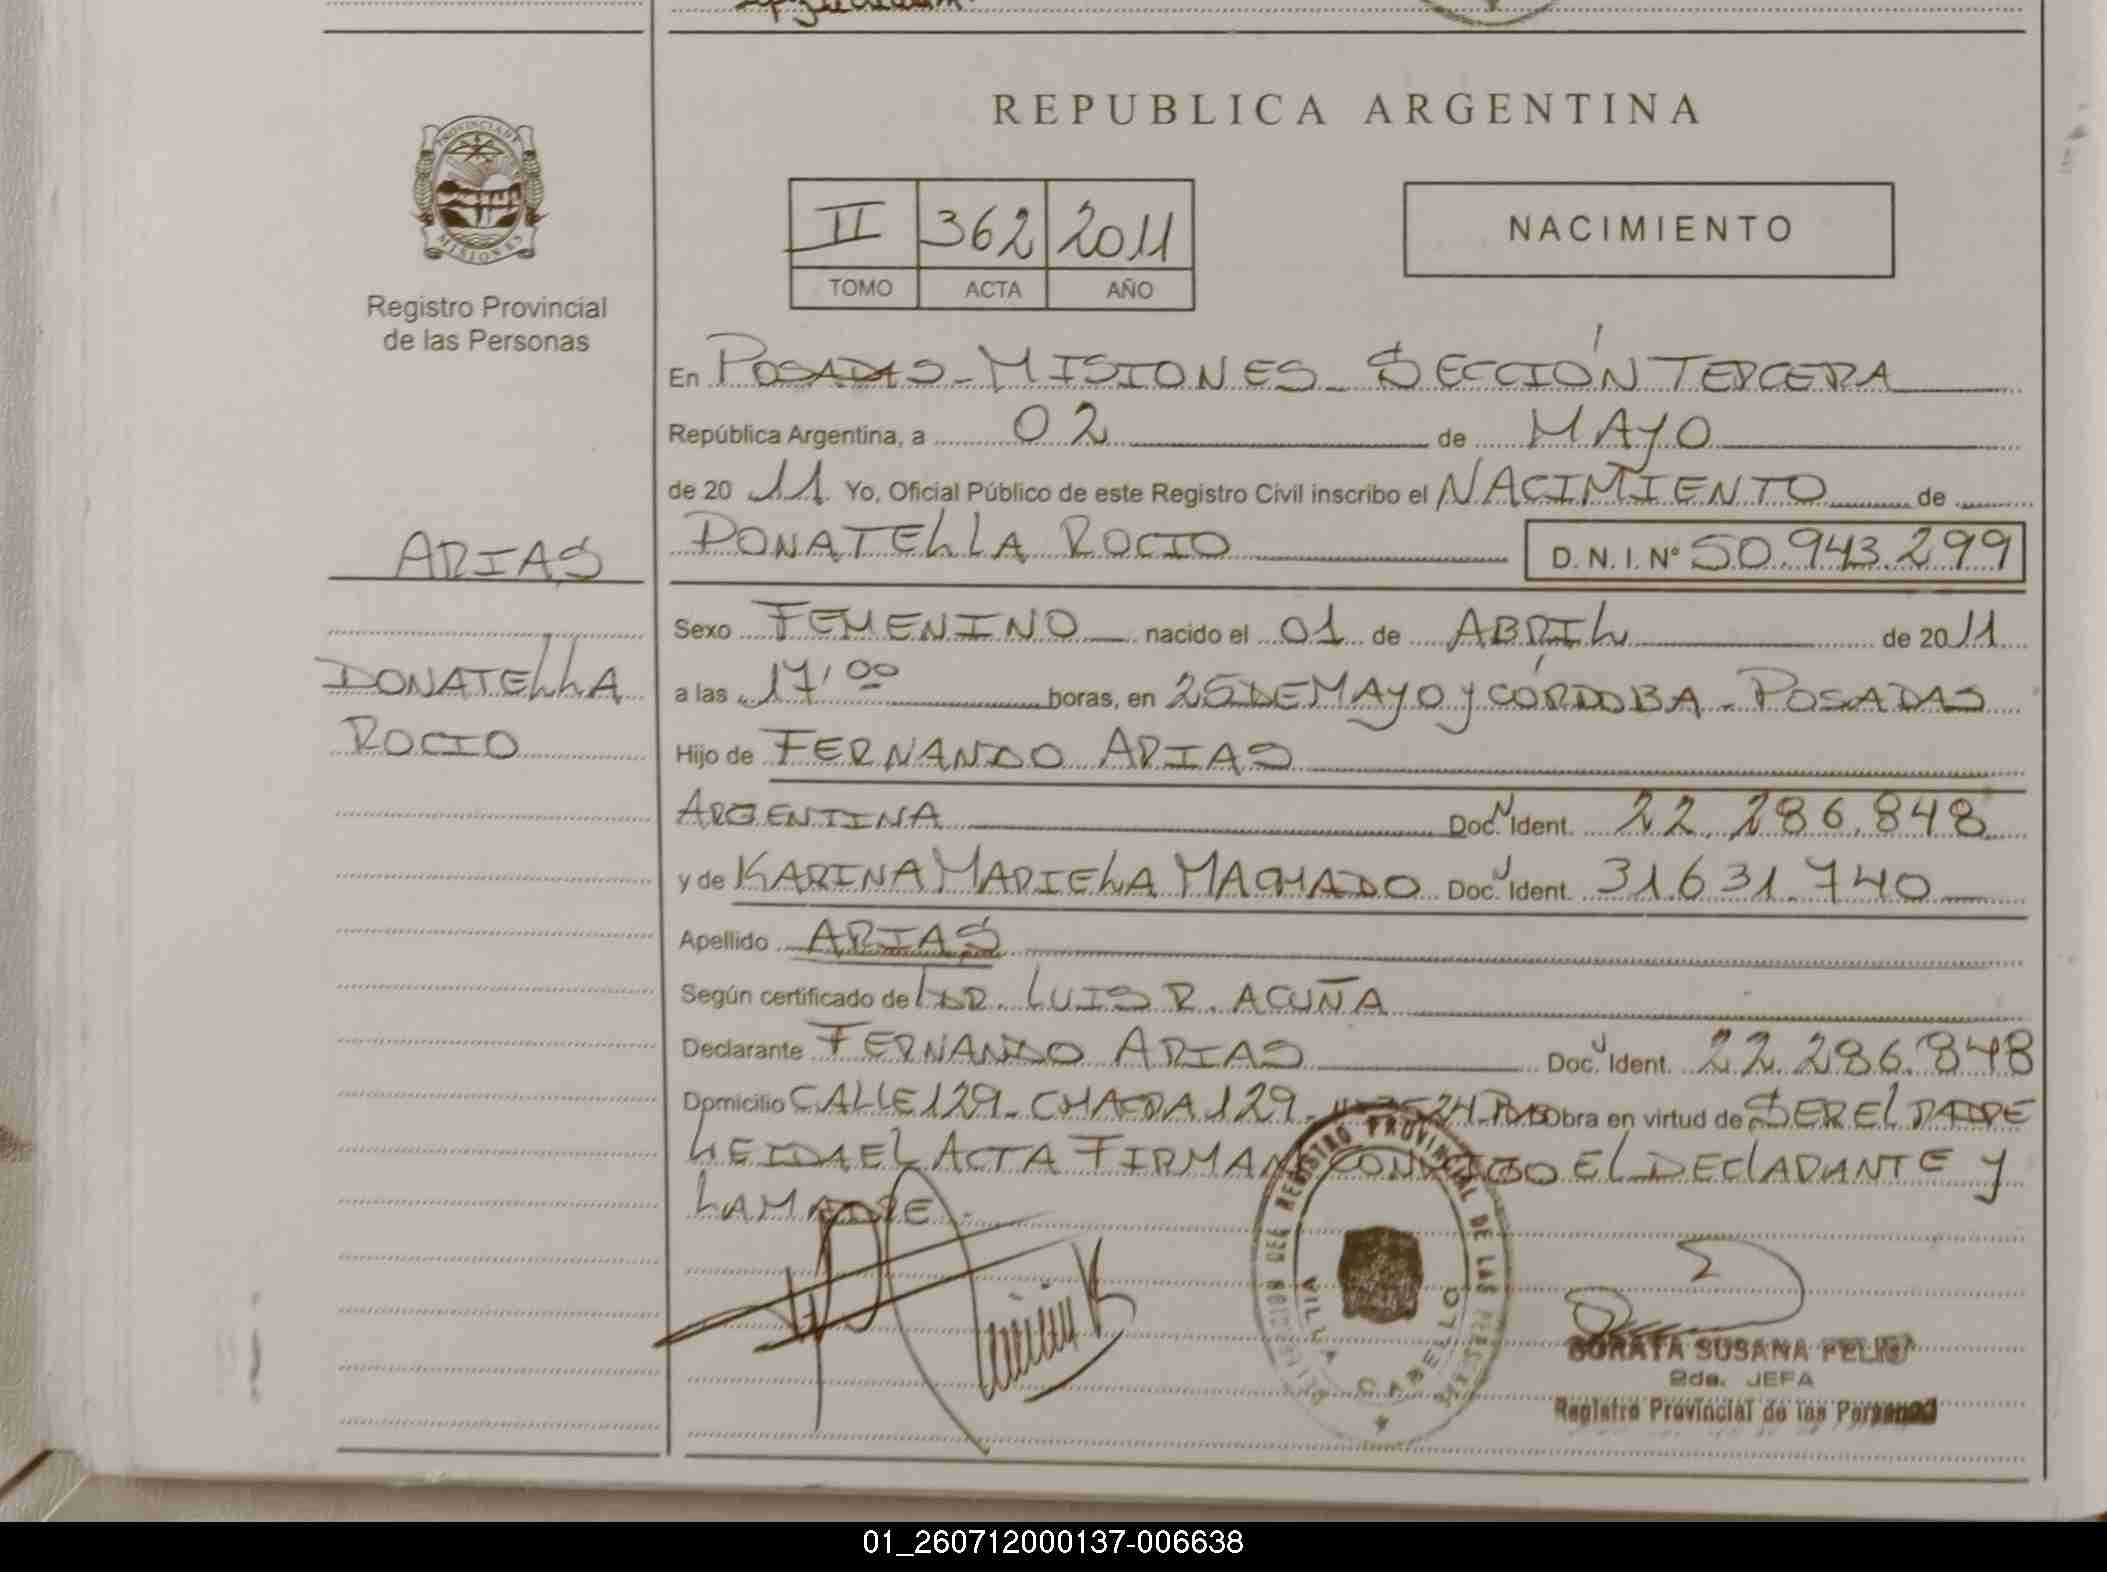 REPUBLICA ARGENTINA
PROVINCIA DE
MISIONES
Registro Provincial
de las Personas
II 362 2011
TOMO ACTA AÑO
NACIMIENTO
En POSADAS - MISIONES - SECCIÓN TERCERA
República Argentina, a 02 de MAYO
de 20 11 Yo, Oficial Público de este Registro Civil inscribo el NACIMIENTO de
DONATELLA ROCIO D. N. I. Nº 50.943.299
ARIAS
DONATELLA
ROCIO
Sexo FEMENINO nacido el 01 de ABRIL de 2011
a las 17,00 horas, en 25 DE MAYO y CÓRDOBA - POSADAS
Hijo de FERNANDO ARIAS
ARGENTINA Doc. Ident. 22.286.848
y de KARINA MARIELA MACHADO Doc. Ident. 31.631.740
Apellido ARIAS
Según certificado del DR. LUIS R. ACUÑA
Declarante FERNANDO ARIAS Doc. Ident. 22.286.848
Domicilio CALLE 129 - CHACRA 129 - Obra en virtud de SER EL PADRE
LEIDA EL ACTA FIRMAN CONMIGO EL DECLARANTE y
LA MADRE.
DEL REGISTRO PROVINCIAL DE LAS
VILLA CABELLO
SUSANA
2da. JEFA
Registro Provincial de las Personas
01_260712000137-006638